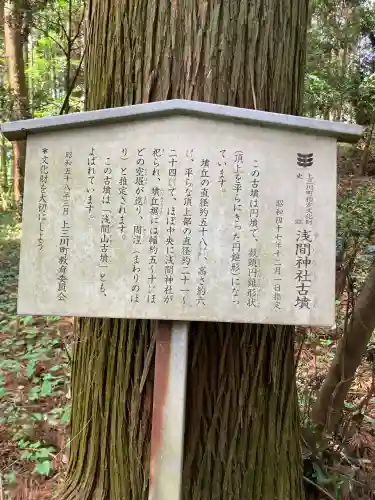 上三川町指定文化財
史跡 浅間神社古墳
昭和四十七年十二月一日指定
この古墳は円墳で、截頭円錐形状
(頂上を平らにきった円錐形)になっ
ています。
墳丘の直径約五十八㍍、高さ約六
㍍、平らな頂上部の直径約二十一～
二十四㍍で、ほぼ中央に浅間神社が
祀られ、墳丘裾には幅約五～十㍍ほ
どの空堀が造り、周湟(まわりのほ
り)と推定されます。
この古墳は「浅間山古墳」とも、
よばれています。
昭和五十八年三月 上三川町教育委員会
*文化財を大切にしよう